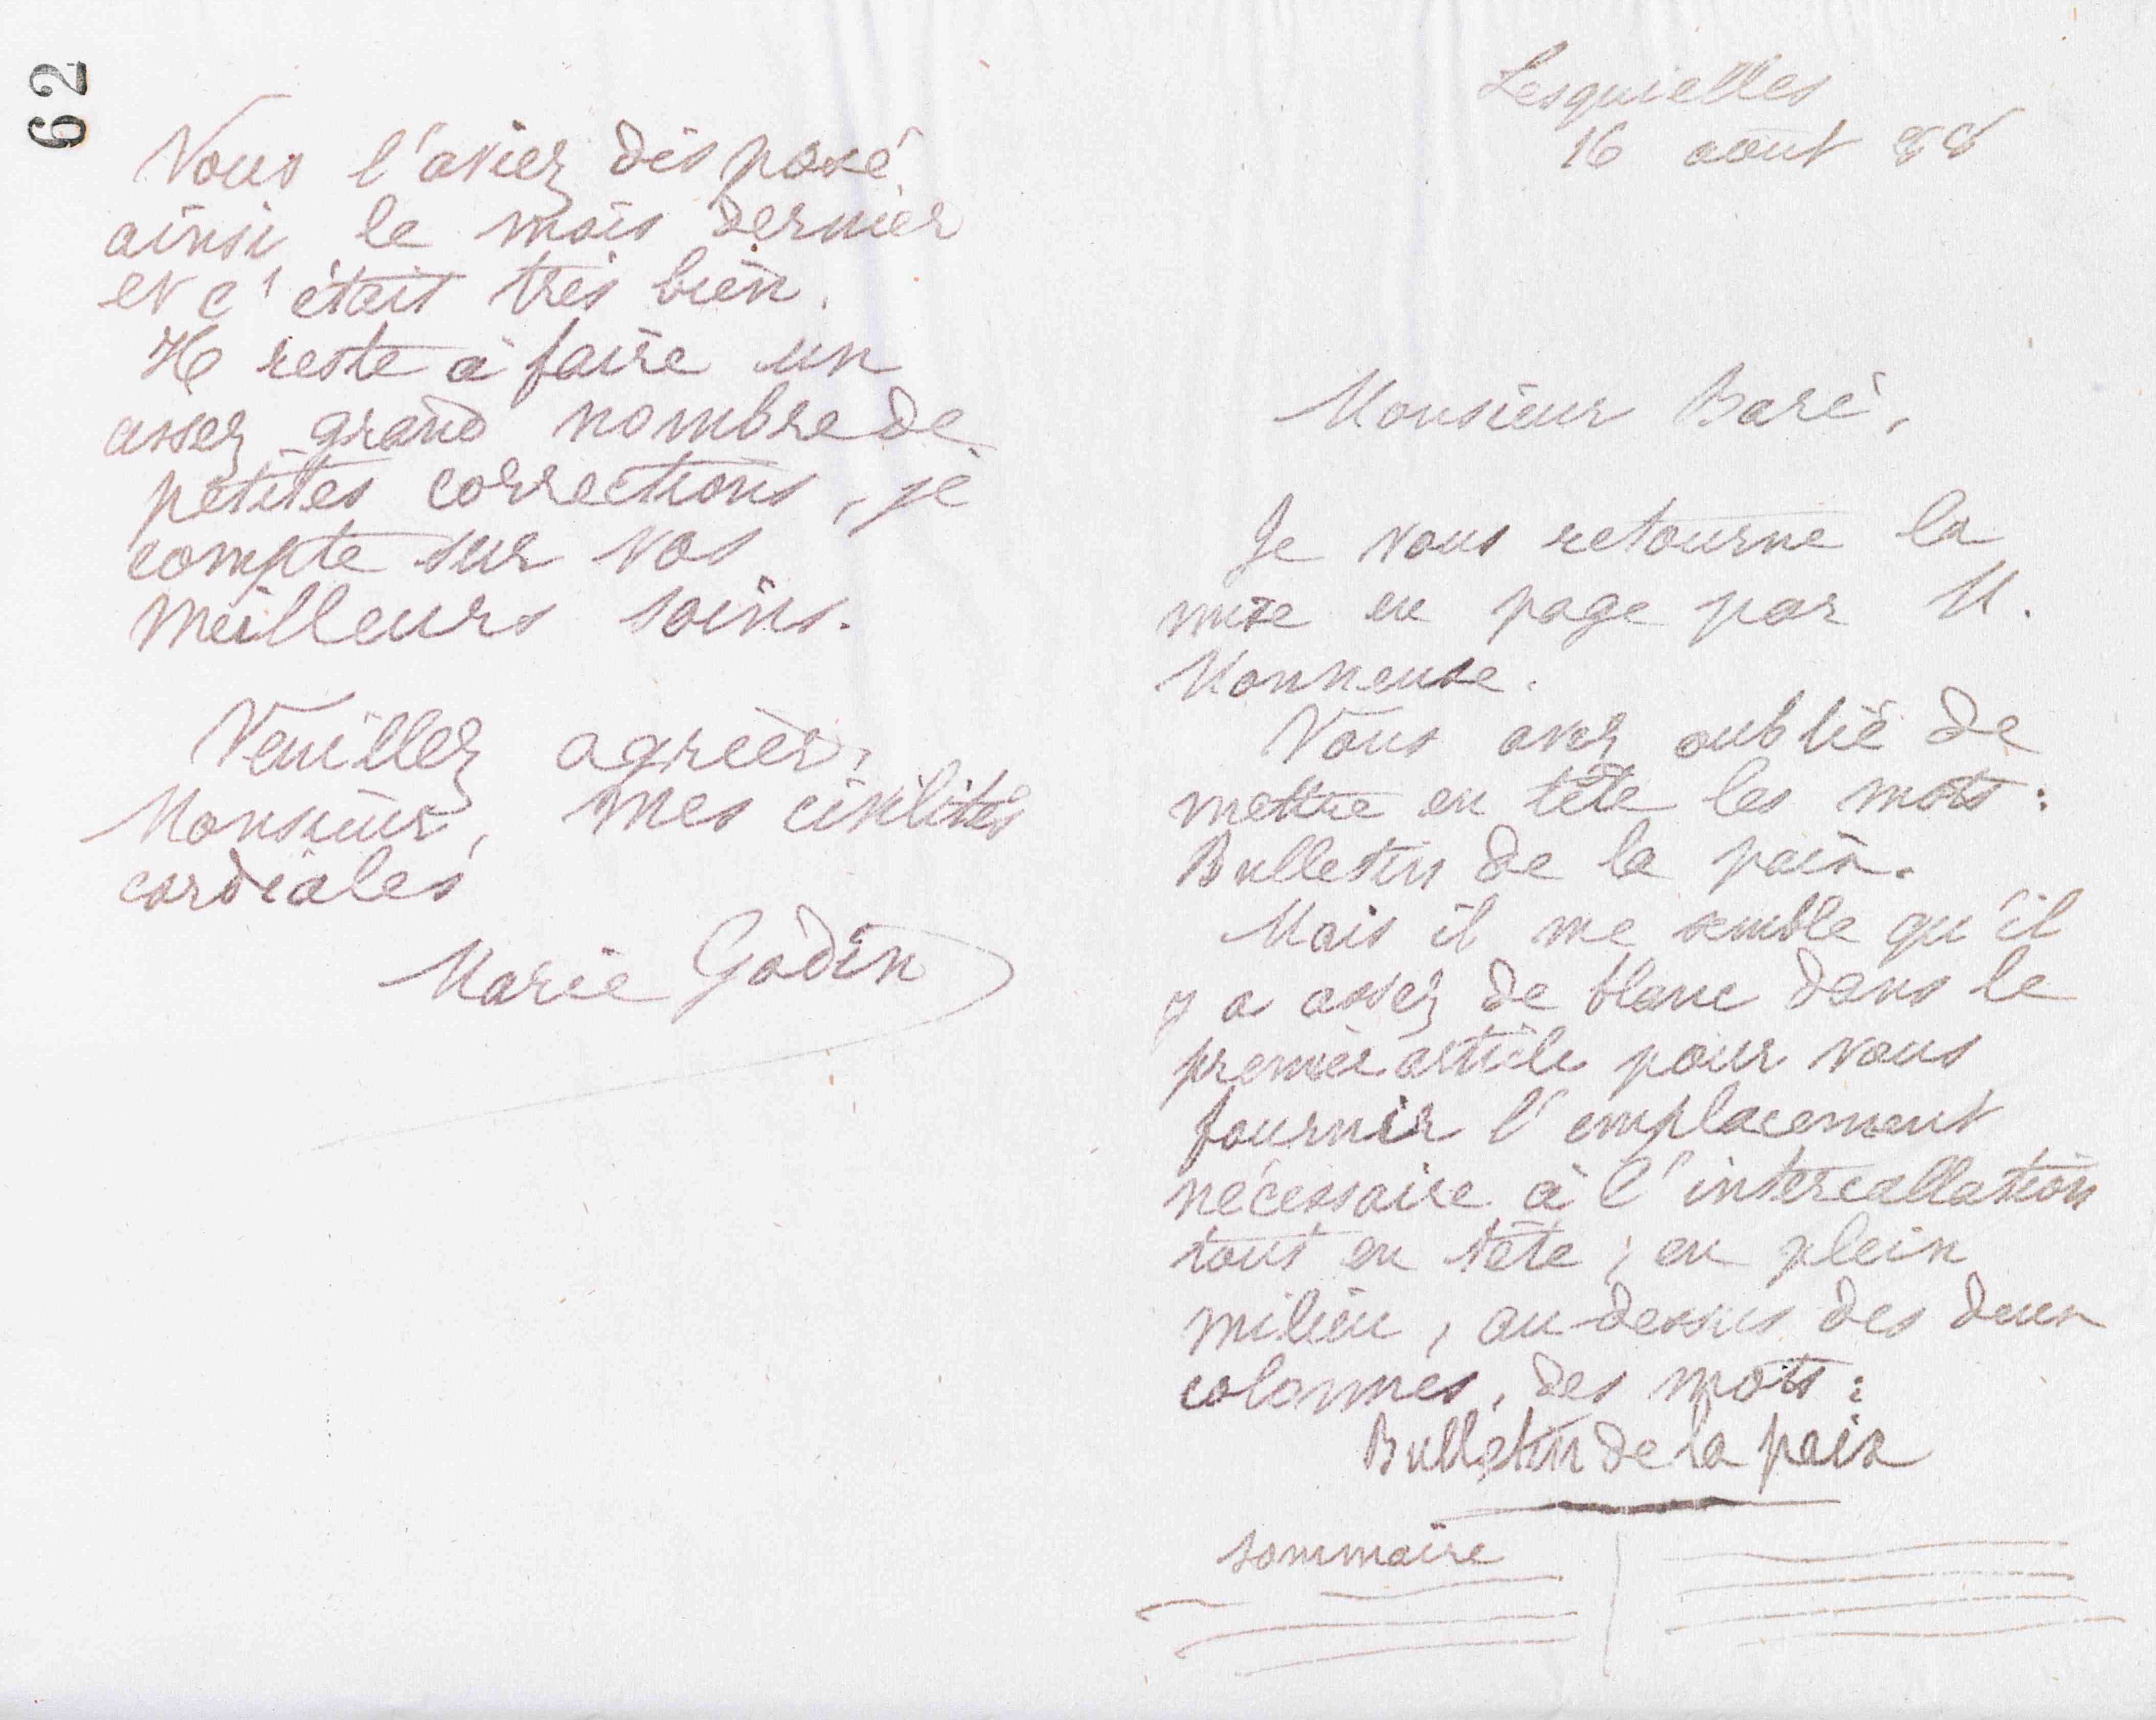 Lesquielles
16 août 88
Monsieur Baré,
Je vous retourne la
mise en page par M.
Monneuse.
Vous avez oublié de
mettre en tête les mots :
Bulletin de la paix.
Mais il me semble qu'il
y a assez de blanc dans le
premier article pour vous
fournir l'emplacement
nécessaire à l'intercallation
tout en tête, en plein
milieu, au-dessus des deux
colonnes, des mots :
Bulletin de la paix
sommaire
62
Vous l'aviez disposé
ainsi le mois dernier
et c'était très bien.
Il reste à faire un
assez grand nombre de
petites corrections, je
compte sur vos
meilleurs soins.
Veuillez agréer,
Monsieur, mes civilités
cordiales
Marie Godin